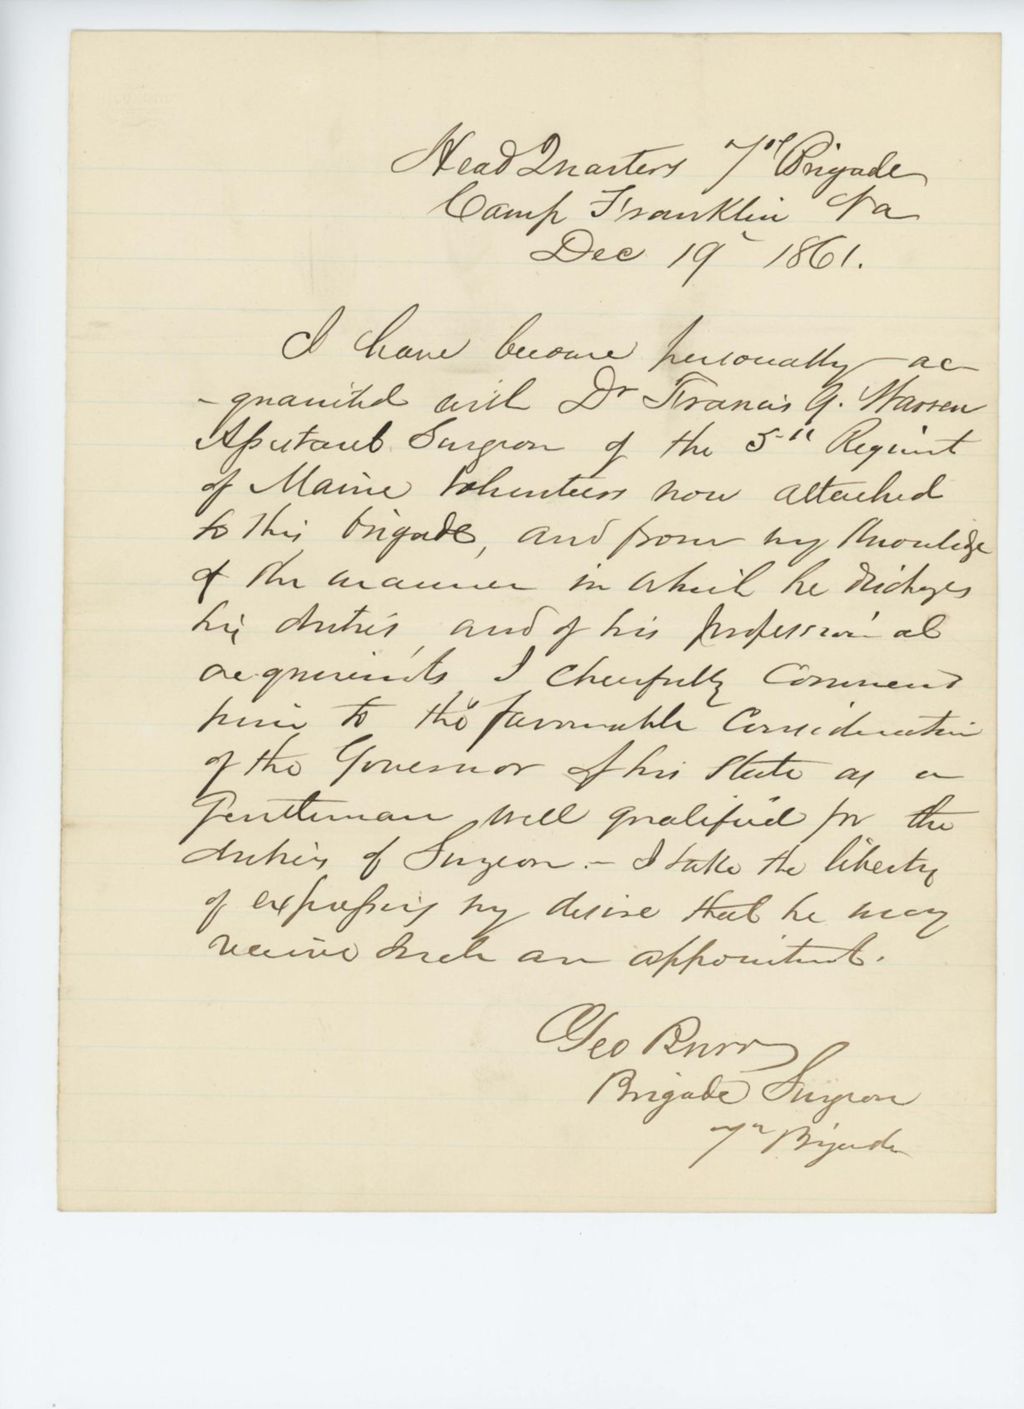 Head Quarters 7th Brigade
Camp Franklin Va
Dec 19 1861.
I have become personally ac
-quainted with Dr Francis G. Warren
Assistant Surgeon of the 5th Regiment
of Maine Volunteers now attached
to this brigade, and from my knowledge
of the manner in which he discharges
his duties and of his professional
acquirements I cheerfully commend
him to the favourable consideration
of the Governor of his State as a
Gentleman well qualified for the
duties of Surgeon - I take the liberty
of expressing my desire that he may
receive such an appointment.
Geo Burr
Brigade Surgeon
7th Brigade